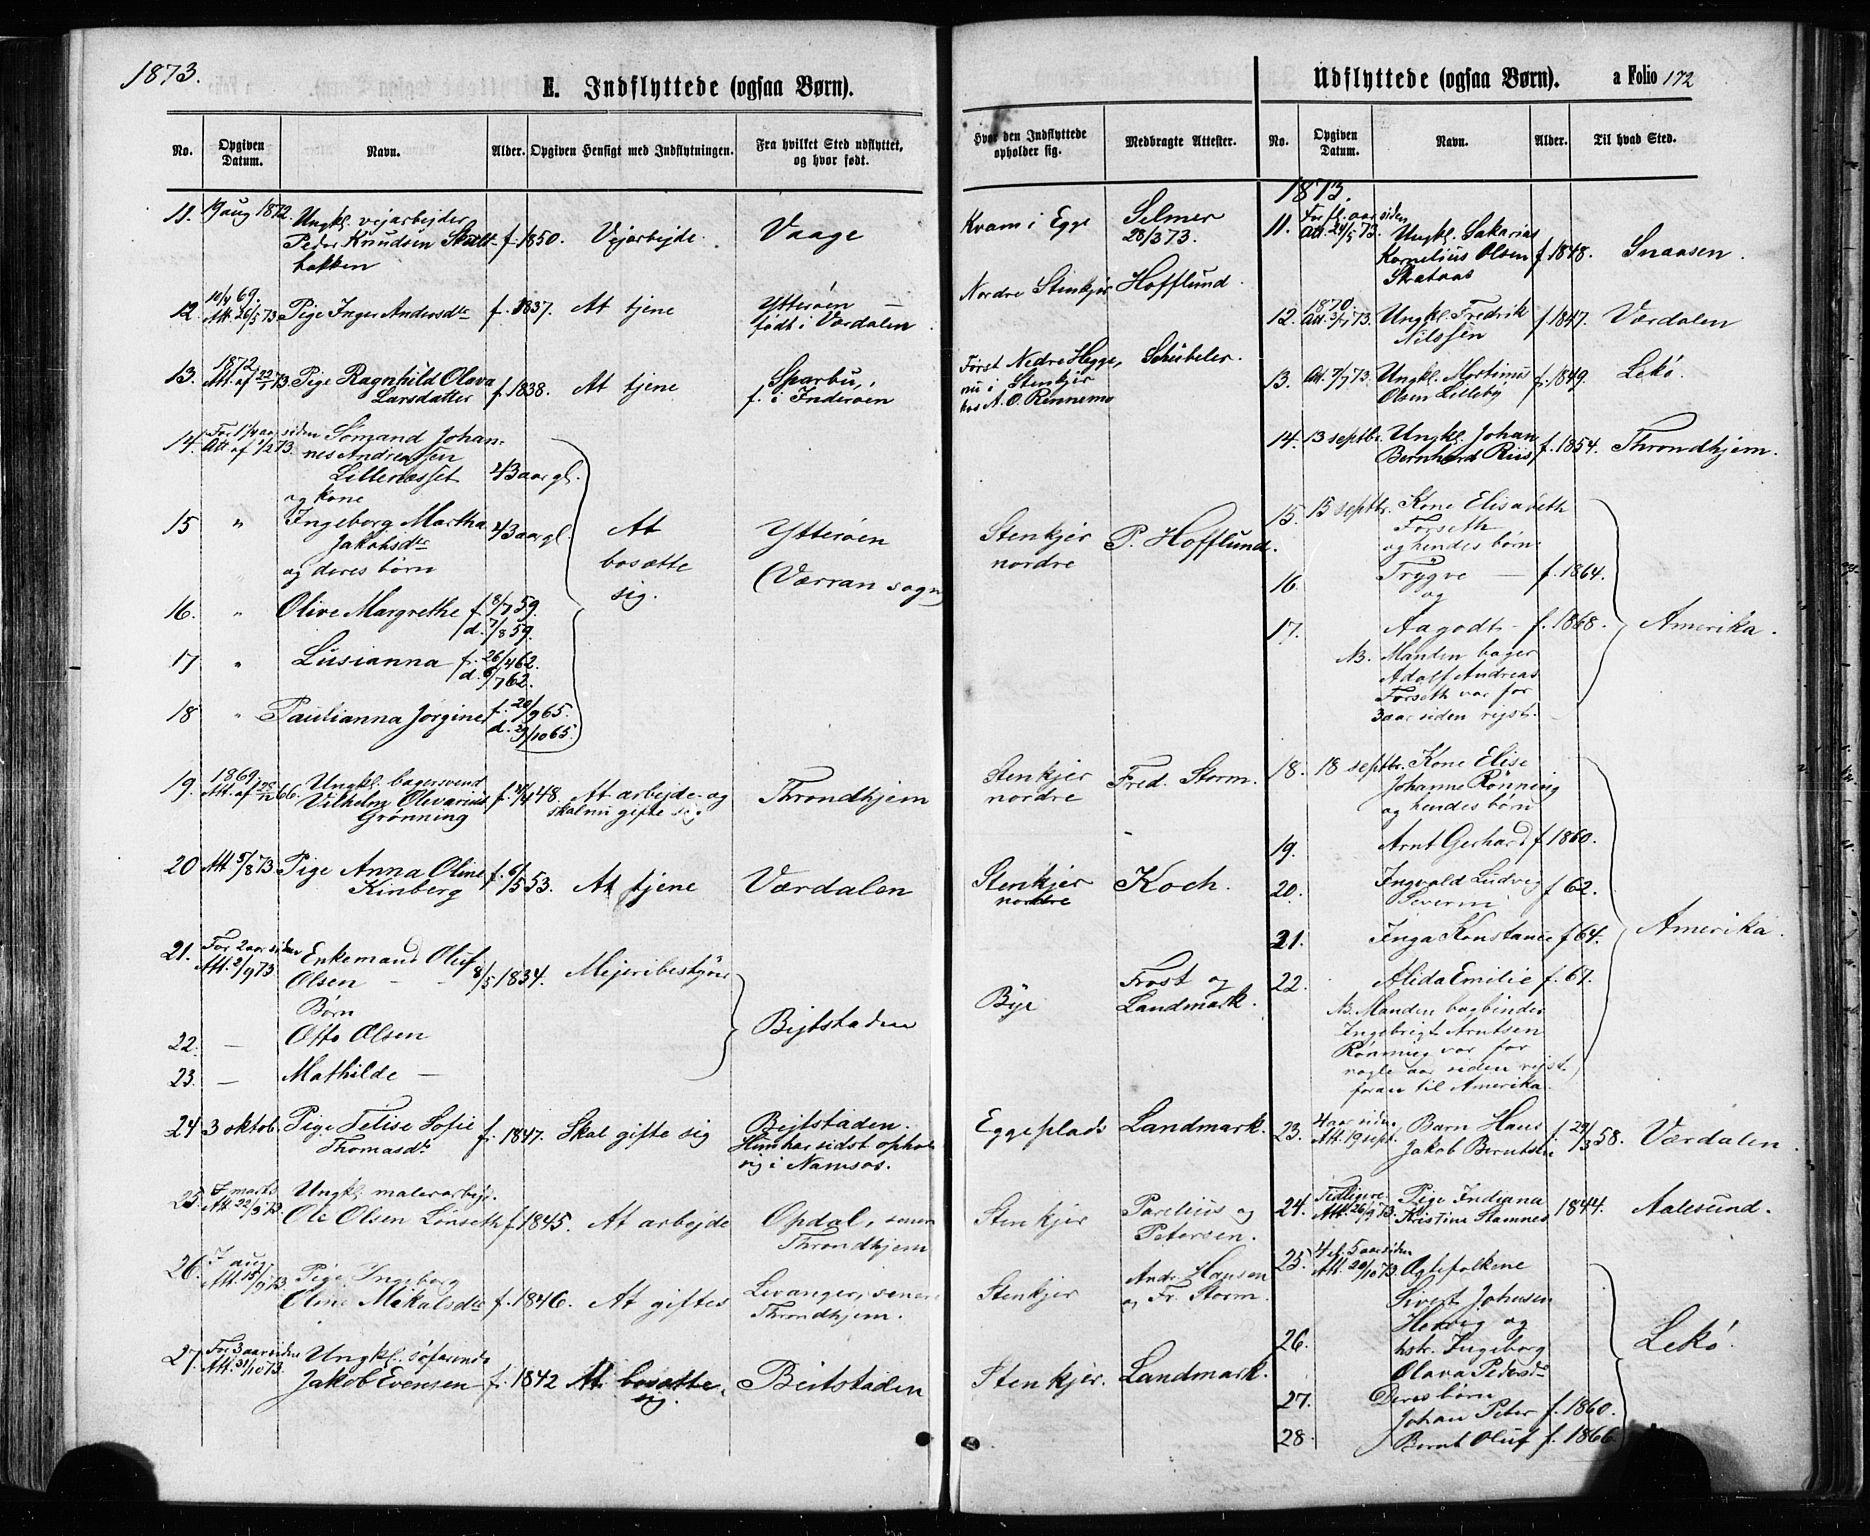 1873.
E. Indflyttede (ogsaa Børn).
No.
Opgiven Datum.
Navn.
Alder.
Opgiven Hensigt med Indflytningen.
Fra hvilket Sted udflyttet, og hvor født.
Hvor den Indflyttede opholder sig.
Medbragte Attester.
11. 19 aug 1872. Ungkl. vejarbejder
Peder Knudsen f. 1850. Vejarbejde. Vaage Kvam i Egge Selmer
bakken 28/3 73.
12. 69. Att. 26/5 73 Pige Inger Andersdtr f. 1837. At tjene Ytterøen –
født i Værdalen Nordre Stenkjer Hofflund.
13. 1872 Att. af 22/1 73 Pige Ragnhild Olava
Larsdatter f. 1838. At tjene Sparbu,
f. i Inderøen
Først Nedre Hegge, Schübeler.
nu i Stenkjer
hos A. O. Rennemo
14. For 1 1/4 aar siden Att. af 1/2 73. Sømand Johan-
nes Andreassen
Lillenæsset 43 aar gl.
og kone
15 " Ingeborg Martha
Jakobsdtr 43 aar gl.
og deres børn
At
bosætte
sig.
Ytterøen
(Værran sogn)
Stenkjer
nordre
P. Hofflund.
16. " Olive Margrethe f. 8/7 59.
d. 7/8 59.
17 " Lusianna f. 26/4 62.
d. 6/7 62.
18 " Paulianna Jørgine f. 20/9 65.
d. 29/10 65.
19. 1869. Att. af 66. Ungkl. bagersvend
Vilhelm Olivarius
Grønning 48. At arbejde og
skal nu gifte sig Throndhjem Stenkjer
nordre Fred. Storm.
20 Att 5/8 73. Pige Anna Oline
Kinberg f. 6/5 53. At tjene Værdalen Stenkjer
nordre Koch.
21. For 2 aar siden Att. 2/9 73 Enkemand Oluf
Olsen – 8/5 1834. Mejeribestyrer
Børn
Bejtstaden
Bye
Frost og
Landmark.
22. – Otto Olsen
23. – Mathilde –
24 3 oktob. Pige Felise Sofie
Thomasdtr f. 1847. Skal gifte sig Bejtstaden.
Hun har sidst opholdt
sig i Namsos. Eggeplads Landmark.
25. I marts Att. 22/9 73. Ungkl. malerarbejd.
Ole Olsen Lønseth f. 1845. At arbejde Opdal, senere
Throndhjem Stenkjer Parelius og
Petersen.
26. I aug. Att. 15/9 73 Pige Ingeborg
Oline Mikalsdtr f. 1846. At giftes Levanger, senere
Throndhjem. Stenkjer Andr. Hansen
og Fr. Storm.
27. For 3 aar siden Att. 31/10 73. Ungkl. søfarende
Jakob Evensen f. 1842 At bosætte
sig. Beitstaden Stenkjer. Landmark.
Udflyttede (ogsaa Børn).
a Folio 172
No.
Opgiven Datum.
Navn.
Alder.
Til hvad Sted.
1873.
11. For fl. aar siden
Att. 24/5 73. Ungkl. Sakarias
Kornelius Olsen
Skataas f. 1848. Snaasen.
12. 1870. Att. 3/7 73. Ungkl. Fredrik
Nilssen f. 1847. Værdalen
13. Att. 7/7 73. Ungkl. Mortinus
Olsen Lilleby f. 1849. Lekø.
14. 13 septbr. Ungkl. Johan
Bernhard Riis f. 1854. Throndhjem.
15. 15 septbr. Kone Elisabeth
Forseth
og hendes børn
16. Trygve – f. 1864.
og
17. Aagodt – f. 1868. Amerika.
NB. Manden bager
Adolf Andreas
Forseth var for
3 aar siden rejst.
18. 18 septbr. Kone Elise
Johanne Rønning
og hendes børn
19. Arnt Gerhard f. 1860.
20. Ingvald Ludvig
Severin f. 62.
21. Inga Konstance f. 64. Amerika.
22. Alida Emilie f. 67.
NB. Manden bogbinder
Ingebrigt Arntsen
Rønning var for
nogle aar siden rejst
foran til Amerika.
23. 4 aar siden Att. 19 sept. Barn Hans
Jakob Berntsen f. 24/3 58. Værdalen.
24. Tidligere Att. 26/9 73. Pige Indiana
Kristine Stamnes 1844. Aalesund.
25. 4 el. 5 aar siden
Att. 20/10 73. Ægtefolkene
Sivert Johnsen
Hervig og
26. hstr. Ingeborg
Olava Pedersdtr Lekø.
27. Deres børn
Johan Peter f. 1860.
28. Bernt Oluf f. 1866.